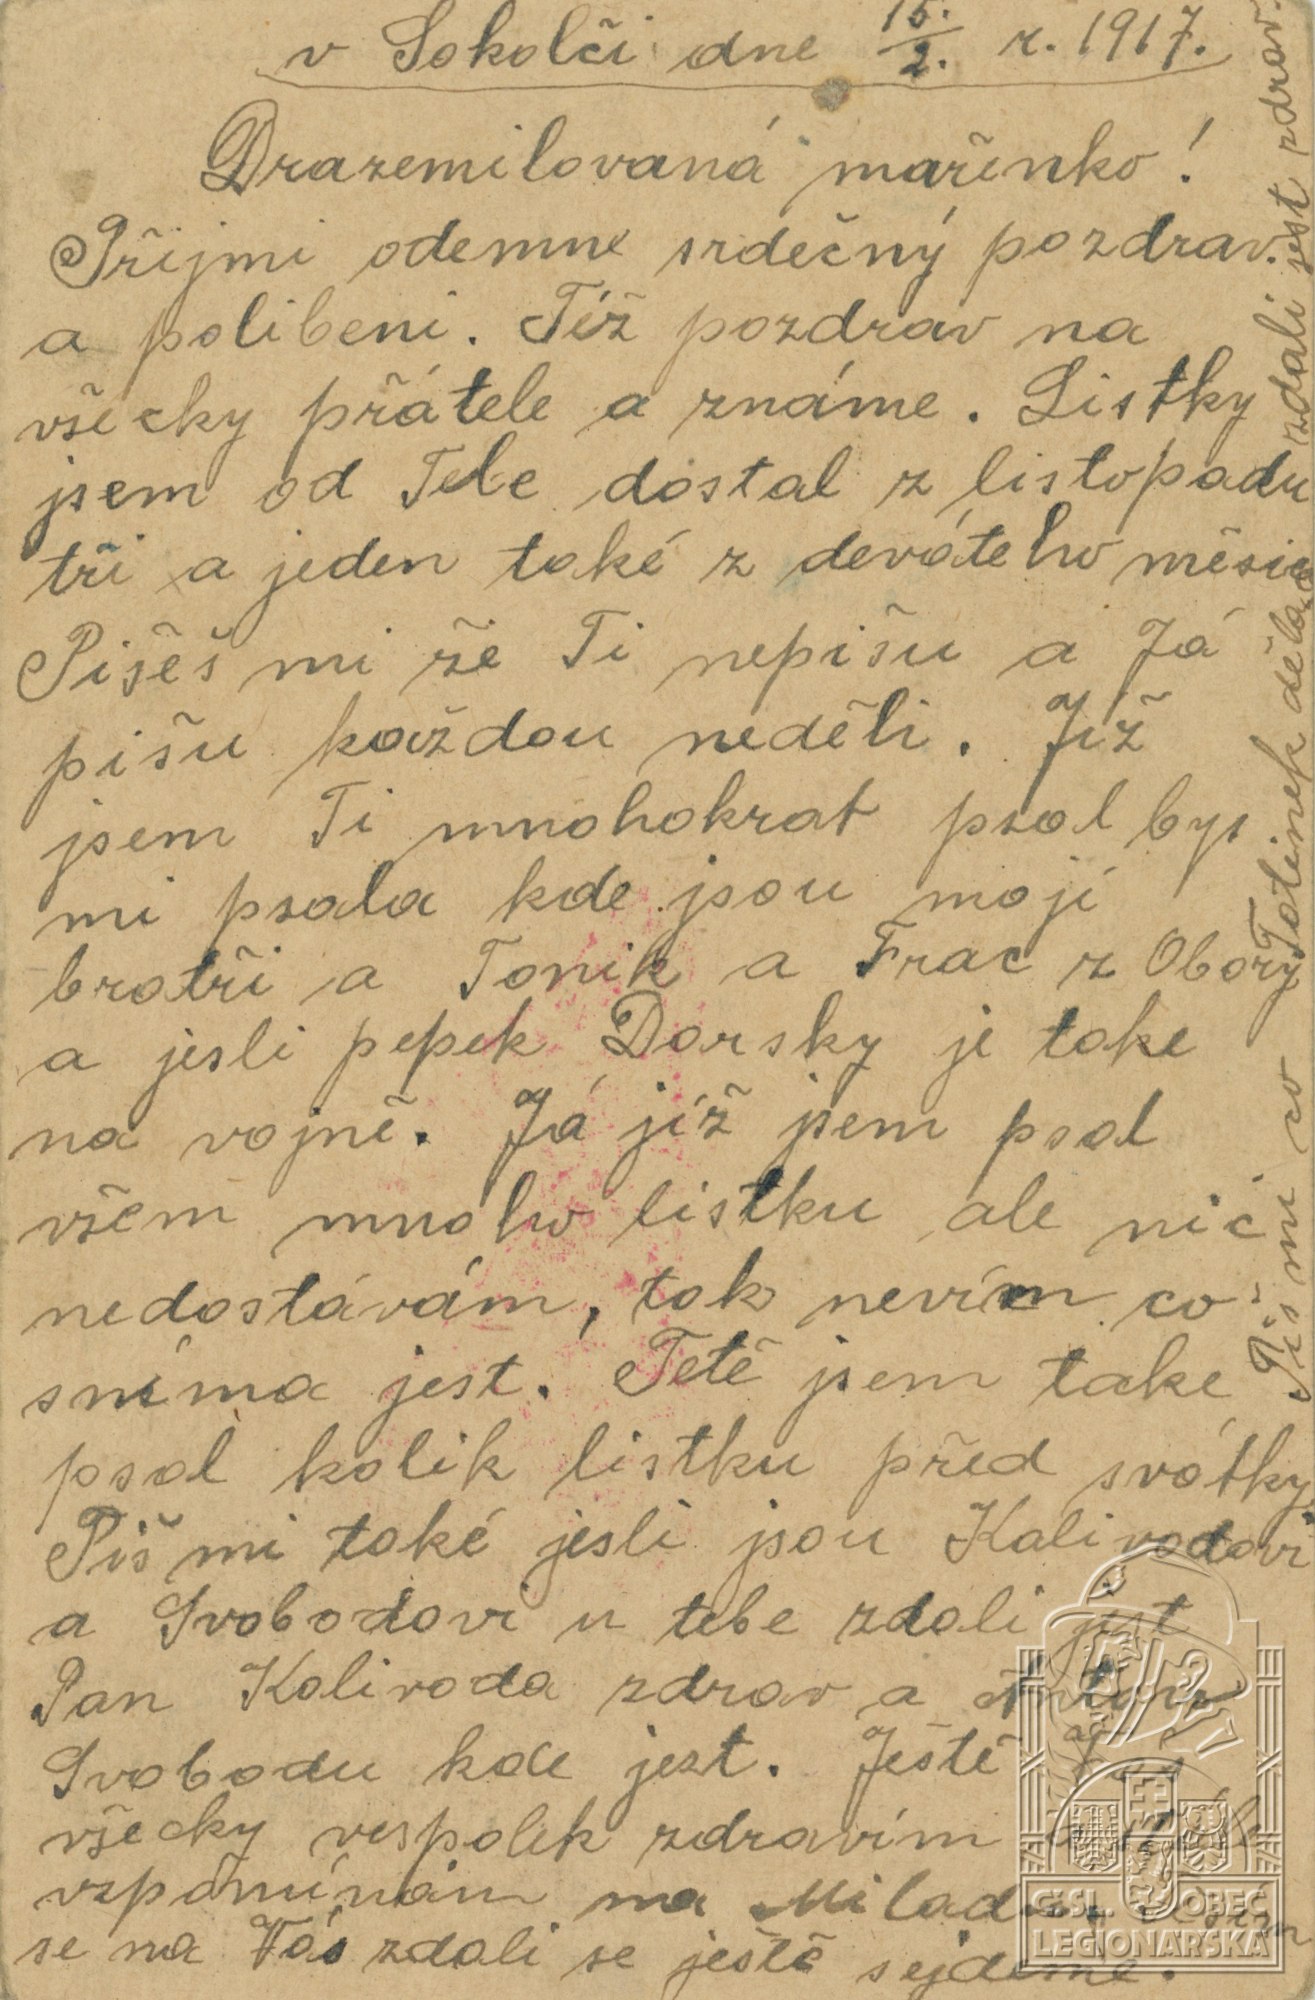 v Sokolči dne 15./2. r. 1917.
Drazemilovaná mařenko!
Přijmi odemne srdečný pozdrav.
a polibeni. Též pozdrav na
všecky přátele a známe. Listky
jsem od Tebe dostal z listopadu
tři a jeden také z deváteho měsic
Pišěš mi žě Ti nepišu a Já
pišu každou neděli. Již
jsem Ti mnohokrat psal bys
mi psala kde jsou moji
bratři a Tonik a Franc z Obory
a jesli pepek Dorsky je take
na vojně. Já jíž jsem psal
všem mnoho listku ale nic
nedostávám, tak nevím co
sníma jest. Tetě jsem take
psal kolik listku před svátky
Piš mi také jesli jsou Kalivodovi
a Svobodovi u tebe zdali jest
Pan Kalivoda zdrav a
Svobodu kde jest. Ještě Vás
všecky vespolek zdravím a stále
vzpóminám na Miladu, těším
se na Vás zdali se ještě sejdeme.
Piš mi co Tatinek děla zdali jest zdrav.
ČSL. OBEC
LEGIONÁŘSKÁ